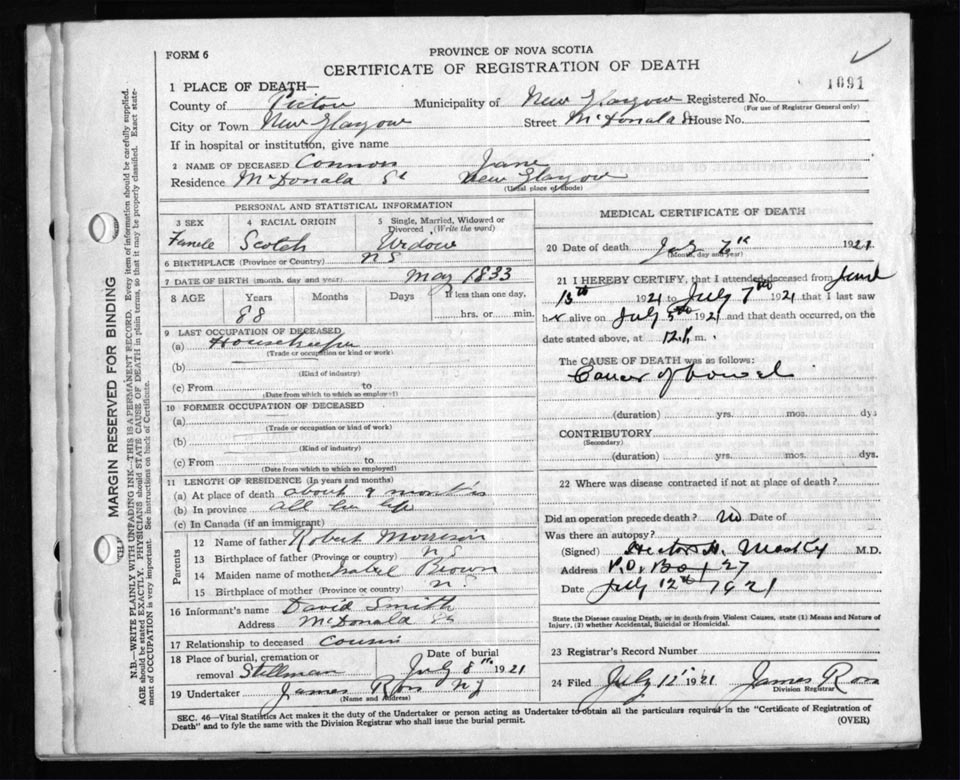 FORM 6
PROVINCE OF NOVA SCOTIA
CERTIFICATE OF REGISTRATION OF DEATH
1091
1 PLACE OF DEATH—
County of Pictou Municipality of New Glasgow Registered No.
(For use of Registrar General only)
City or Town New Glasgow Street McDonald St House No.
If in hospital or institution, give name
2 NAME OF DECEASED Connors Jane
Residence McDonald St New Glasgow
(Usual place of abode)
PERSONAL AND STATISTICAL INFORMATION
3 SEX 4 RACIAL ORIGIN 5 Single, Married, Widowed or Divorced (Write the word)
Female Scotch Widow
6 BIRTHPLACE (Province or Country) N S
7 DATE OF BIRTH (month, day and year) May 1833
8 AGE Years Months Days If less than one day,
88 hrs. or min.
9 LAST OCCUPATION OF DECEASED
(a) Housekeeper
(Trade or occupation or kind of work)
(b)
(Kind of industry)
(c) From to
(Date from which to which so employed)
10 FORMER OCCUPATION OF DECEASED
(a)
(Trade or occupation or kind of work)
(b)
(Kind of industry)
(c) From to
(Date from which to which so employed)
11 LENGTH OF RESIDENCE (In years and months)
(a) At place of death about 9 months
(b) In province all her life
(c) In Canada (if an immigrant)
Parents
12 Name of father Robert Morrison
13 Birthplace of father (Province or country) N S
14 Maiden name of mother Isabel Brown
15 Birthplace of mother (Province or country) N S
16 Informant's name David Smith
Address McDonald St
17 Relationship to deceased Cousin
18 Place of burial, cremation or removal Stillman Date of burial July 8th 1921
19 Undertaker James Ross N G
(Name and Address)
MEDICAL CERTIFICATE OF DEATH
20 Date of death July 7th 1921
(Month, day and year)
21 I HEREBY CERTIFY, that I attended deceased from June
13th 1921 to July 7th 1921 that I last saw
her alive on July 5th 1921 and that death occurred, on the
date stated above, at 12.1 m.
The CAUSE OF DEATH was as follows:
Cancer of bowel
(duration) yrs. mos. dys
CONTRIBUTORY
(Secondary)
(duration) yrs. mos. dys.
22 Where was disease contracted if not at place of death?
Did an operation precede death? No Date of
Was there an autopsy?
(Signed) Hector H. M.D.
Address P.O. Box 27
Date July 12th 1921
State the Disease causing Death, or in death from Violent Causes, state (1) Means and Nature of
Injury. (2) whether Accidental, Suicidal or Homicidal.
23 Registrar's Record Number
24 Filed July 12 1921 James Ross
Division Registrar
SEC. 46—Vital Statistics Act makes it the duty of the Undertaker or person acting as Undertaker to obtain all the particulars required in the "Certificate of Registration of
Death" and to fyle the same with the Division Registrar who shall issue the burial permit.
(OVER)
MARGIN RESERVED FOR BINDING
N.B.—WRITE PLAINLY WITH UNFADING INK—THIS IS A PERMANENT RECORD. Every item of information should be carefully supplied.
AGE should be stated EXACTLY. PHYSICIANS should STATE CAUSE OF DEATH in plain terms, so that it may be properly classified. Exact state-
ment of OCCUPATION is very important. See instructions on back of Certificate.